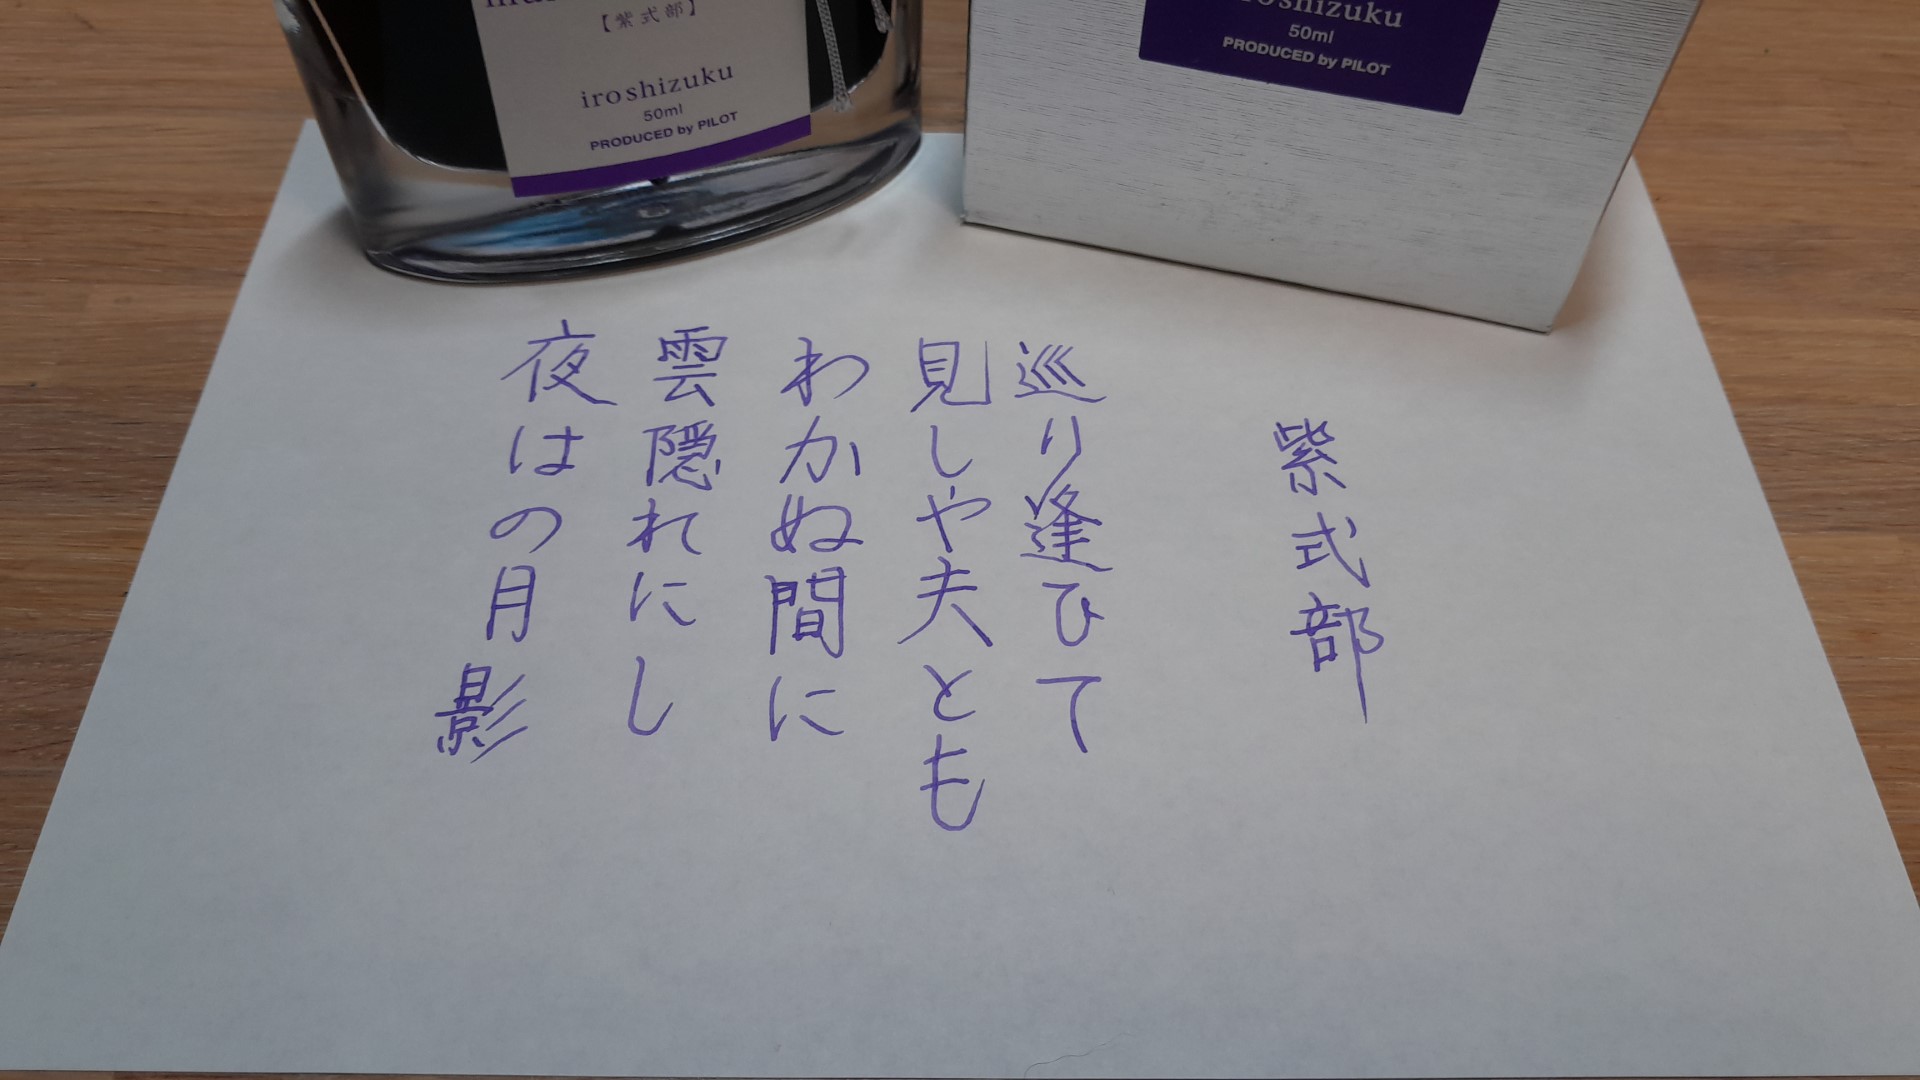 【紫式部】
iroshizuku
50ml
PRODUCED by PILOT
iroshizuku
50ml
PRODUCED by PILOT
紫式部
巡り逢ひて
見しや夫とも
わかぬ間に
雲隠れにし
夜はの月影